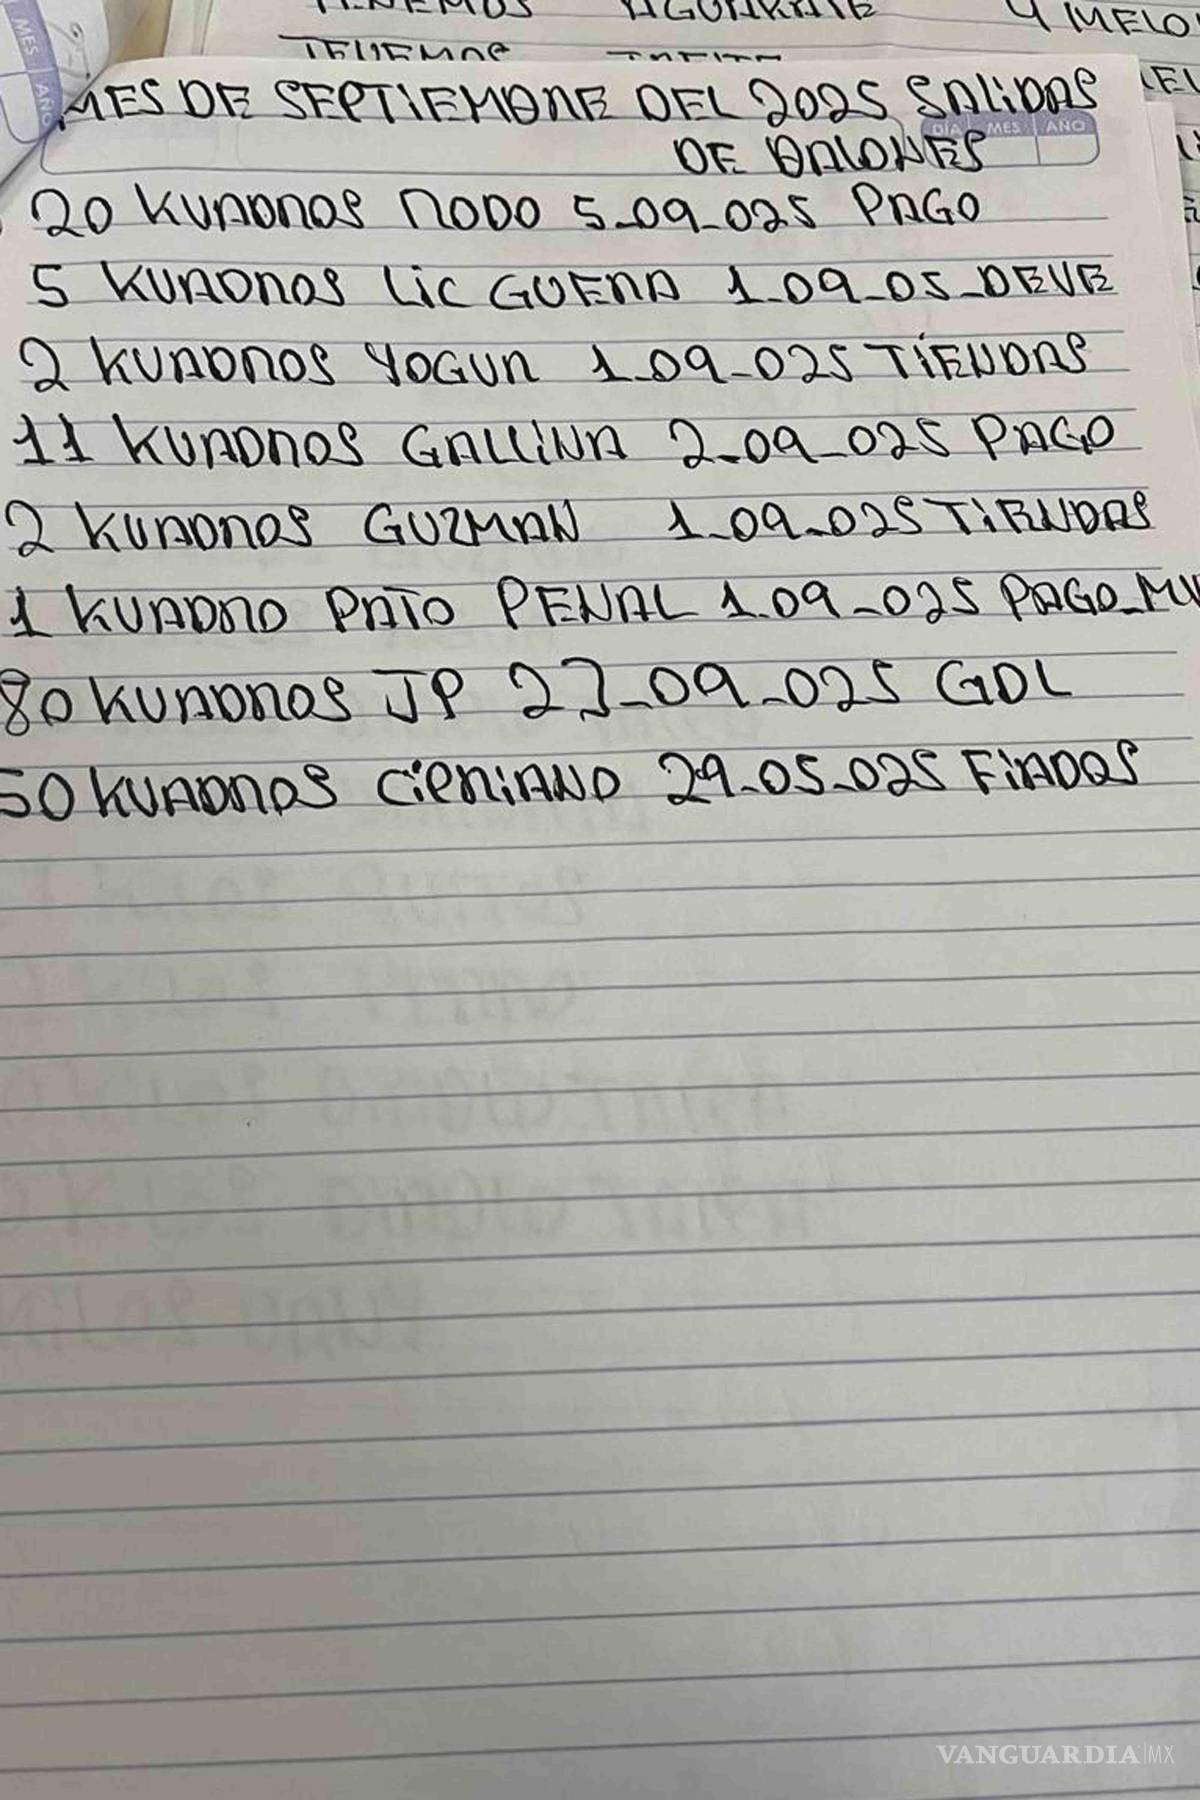 TENEMOS AGUAKATE 4 MELO
TENEMOS
MES AÑO
MES DE SEPTIEMBRE DEL 2025 SALIDAS
DÍA MES AÑO
DE BALONES
20 KUADROS RODO 5-09-025 PAGO
5 KUADROS LiC GUERA 1-09-05-DEVE
2 KUADROS YOGUR 1-09-025 TiENDAS
11 KUADROS GALLiNA 2-09-025 PAGO
2 KUADROS GUZMAN 1-09-025 TiENDAS
1 KUADRO PATO PENAL 1-09-025 PAGO-MU
80 KUADROS JP 23-09-025 GDL
50 KUADROS CiPRiANO 29-05-025 FiADOS
VANGUARDIA|MX